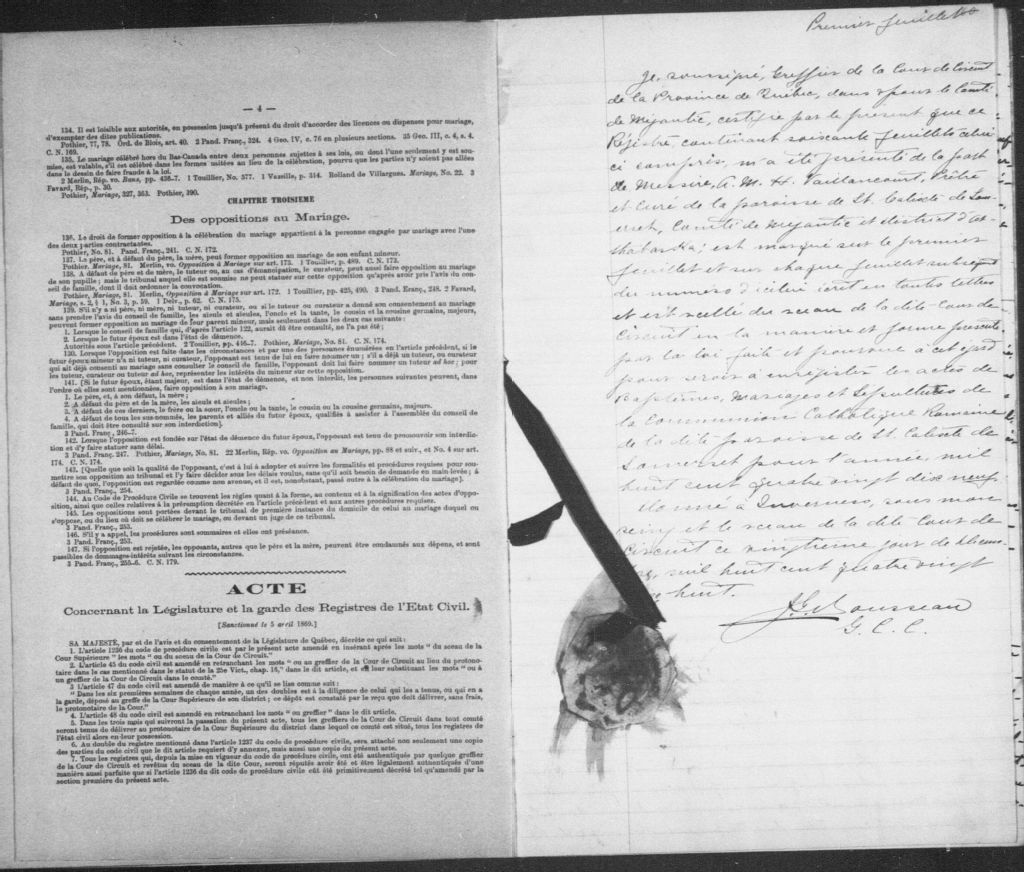 — 4 —
134. Il est loisible aux autorités, en possession jusqu'à présent du droit d'accorder des licences ou dispenses pour mariage,
d'exempter des dites publications.
Pothier, 77, 78. Ord. de Blois, art. 40. 2 Pand. Franç., 324. 4 Geo. IV, c. 76 en plusieurs sections. 35 Geo. III, c. 4, s. 4.
C. N. 169.
135. Le mariage célébré hors du Bas-Canada entre deux personnes sujettes à ses lois, ou dont l'une seulement y est sou-
mise, est valable, s'il est célébré dans les formes usitées au lieu de la célébration, pourvu que les parties n'y soient pas allées
dans le dessein de faire fraude à la loi.
2 Merlin, Rép. vo. Bans, pp. 436-7. 1 Touillier, No. 577. 1 Vazeille, p. 314. Rolland de Villargues. Mariage, No. 22. 3
Favard, Rép., p. 30.
Pothier, Mariage, 327, 363. Pothier, 390.
CHAPITRE TROISIEME
Des oppositions au Mariage.
136. Le droit de former opposition à la célébration du mariage appartient à la personne engagée par mariage avec l'une
des deux parties contractantes.
Pothier, No. 81. Pand. Franç., 241. C. N. 172.
137. Le père, et à défaut du père, la mère, peut former opposition au mariage de son enfant mineur.
Pothier. Mariage, 81. Merlin, vo. Opposition à Mariage sur art. 173. 1 Touillier, p. 489. C. N. 173.
138. A défaut de père et de mère, le tuteur ou, au cas d'émancipation, le curateur, peut aussi faire opposition au mariage
de son pupille ; mais le tribunal auquel elle est soumise ne peut statuer sur cette opposition qu'après avoir pris l'avis du con-
seil de famille, dont il doit ordonner la convocation.
Pothier, Mariage, 81. Merlin, Opposition à Mariage sur art. 172. 1 Touillier, pp. 425, 490. 3 Pand. Franç., 248. 2 Favard,
Mariage, s. 2, § 1, No. 3, p. 59. 1 Delv., p. 62. C. N. 175.
139. S'il n'y a ni père, ni mère, ni tuteur, ni curateur, ou si le tuteur ou curateur a donné son consentement au mariage
sans prendre l'avis du conseil de famille, les aieuls et aieules, l'oncle et la tante, le cousin et la cousine germains, majeurs,
peuvent former opposition au mariage de leur parent mineur, mais seulement dans les deux cas suivants :
1. Lorsque le conseil de famille qui, d'après l'article 122, aurait dû être consulté, ne l'a pas été ;
2. Lorsque le futur époux est dans l'état de démence.
Autorités sous l'article précédent. 2 Touillier, pp. 416-7. Pothier, Mariage, No. 81. C. N. 174.
130. Lorsque l'opposition est faite dans les circonstances et par une des personnes énumérées en l'article précédent, si le
futur époux mineur n'a ni tuteur, ni curateur, l'opposant est tenu de lui en faire nommer un ; s'il a déjà un tuteur, ou curateur
qui ait déjà consenti au mariage sans consulter le conseil de famille, l'opposant doit lui faire nommer un tuteur ad hoc ; pour
les tuteur, curateur ou tuteur ad hoc, représenter les intérêts du mineur sur cette opposition.
141. [Si le futur époux, étant majeur, est dans l'état de démence, et non interdit, les personnes suivantes peuvent, dans
l'ordre où elles sont mentionnées, faire opposition à son mariage.
1. Le père, et, à son défaut, la mère ;
2. A défaut du père et de la mère, les aieuls et aieules ;
3. A défaut de ces derniers, le frère ou la sœur, l'oncle ou la tante, le cousin ou la cousine germains, majeurs.
4. A défaut de tous les sus-nommés, les parents et alliés du futur époux, qualifiés à assister à l'assemblée du conseil de
famille, qui doit être consulté sur son interdiction].
3 Pand. Franç., 246-7.
142. Lorsque l'opposition est fondée sur l'état de démence du futur époux, l'opposant est tenu de promouvoir son interdic-
tion et d'y faire statuer sans délai.
3 Pand. Franç. 247. Pothier, Mariage, No. 81. 22 Merlin, Rép. vo. Opposition au Mariage, pp. 88 et suiv., et No. 4 sur art.
174. C. N. 174.
143. [Quelle que soit la qualité de l'opposant, c'est à lui à adopter et suivre les formalités et procédures requises pour sou-
mettre son opposition au tribunal et l'y faire décider sous les délais voulus, sans qu'il soit besoin de demande en main-levée ; à
défaut de quoi, l'opposition est regardée comme non avenue, et il est, nonobstant, passé outre à la célébration du mariage].
3 Pand. Franç., 254.
144. Au Code de Procédure Civile se trouvent les règles quant à la forme, au contenu et à la signification des actes d'oppo-
sition, ainsi que celles relatives à la péremption décrétée en l'article précédent et aux autres procédures requises.
145. Les oppositions sont portées devant le tribunal de première instance du domicile de celui au mariage duquel on
s'oppose, ou du lieu où doit se célébrer le mariage, ou devant un juge de ce tribunal.
3 Pand. Franç., 253.
146. S'il y a appel, les procédures sont sommaires et elles ont préséance.
3 Pand. Franç., 253.
147. Si l'opposition est rejetée, les opposants, autres que le père et la mère, peuvent être condamnés aux dépens, et sont
passibles de dommages-intérêts suivant les circonstances.
3 Pand. Franç., 255-6. C. N. 179.
ACTE
Concernant la Législature et la garde des Registres de l'Etat Civil.
[Sanctionné le 5 avril 1869.]
SA MAJESTÉ, par et de l'avis et du consentement de la Législature de Québec, décrète ce qui suit :
1. L'article 1236 du code de procédure civile est par le présent acte amendé en insérant après les mots " du sceau de la
Cour Supérieure " les mots " ou du sceau de la Cour de Circuit."
2. L'article 45 du code civil est amendé en retranchant les mots " ou au greffier de la Cour de Circuit au lieu du protono-
taire dans le cas mentionné dans le statut de la 25e Vict., chap. 16," dans le dit article, et en leur substituant les mots " ou à
un greffier de la Cour de Circuit dans le comté."
3 L'article 47 du code civil est amendé de manière à ce qu'il se lise comme suit :
" Dans les six premières semaines de chaque année, un des doubles est à la diligence de celui qui les a tenus, ou qui en a
la garde, déposé au greffe de la Cour Supérieure de son district ; ce dépôt est constaté par le reçu que doit délivrer, sans frais,
le protonotaire de la Cour."
4. L'article 48 du code civil est amendé en retranchant les mots " ou greffier " dans le dit article.
5. Dans les trois mois qui suivront la passation du présent acte, tous les greffiers de la Cour de Circuit dans tout comté
seront tenus de délivrer au protonotaire de la Cour Supérieure du district dans lequel ce comté est situé, tous les registres de
l'état civil alors en leur possession.
6. Au double du registre mentionné dans l'article 1237 du code de procédure civile, sera attaché non seulement une copie
des parties du code civil que le dit article requiert d'y annexer, mais aussi une copie du présent acte.
7. Tous les registres qui, depuis la mise en vigueur du code de procédure civile, ont été authentiqués par quelque greffier
de la Cour de Circuit et revêtus du sceau de la dite Cour, seront réputés avoir été et être légalement authentiqués d'une
manière aussi parfaite que si l'article 1236 du dit code de procédure civile eût été primitivement décrété tel qu'amendé par la
section première du présent acte.
Premier feuillet
Je, soussigné, Greffier de la Cour de Circuit
de la Province de Québec, dans & pour le Comté
de Mégantic, certifie par le présent que ce
Régistre, contenant soixante feuillets celui
ci compris, m'a été présenté de la part
de Messire, A. M. H. Vaillancourt, Prêtre
et Curé de la paroisse de St. Calixte de Som-
erset, Comté de Mégantic et district d'Ar-
thabaska ; est marqué sur le premier
feuillet et sur chaque feuillet subséquent
du numéro d'icelui écrit en toutes lettres
et est scellé du sceau de la dite Cour de
Circuit en la manière et forme prescrite
par la loi faite et pourvue à cet égard
pour servir à enregistrer les actes de
Baptêmes, Mariages et Sépultures de
la Communion Catholique Romaine
de la dite paroisse de St. Calixte de
Somerset pour l'année, mil
huit cent quatre vingt dix neuf.
Donné à Inverness, sous mon
seing et le sceau de la dite Cour de
Circuit ce vingtième jour de Décem-
bre, mil huit cent quatre vingt
huit.
Rousseau
G. C. C.